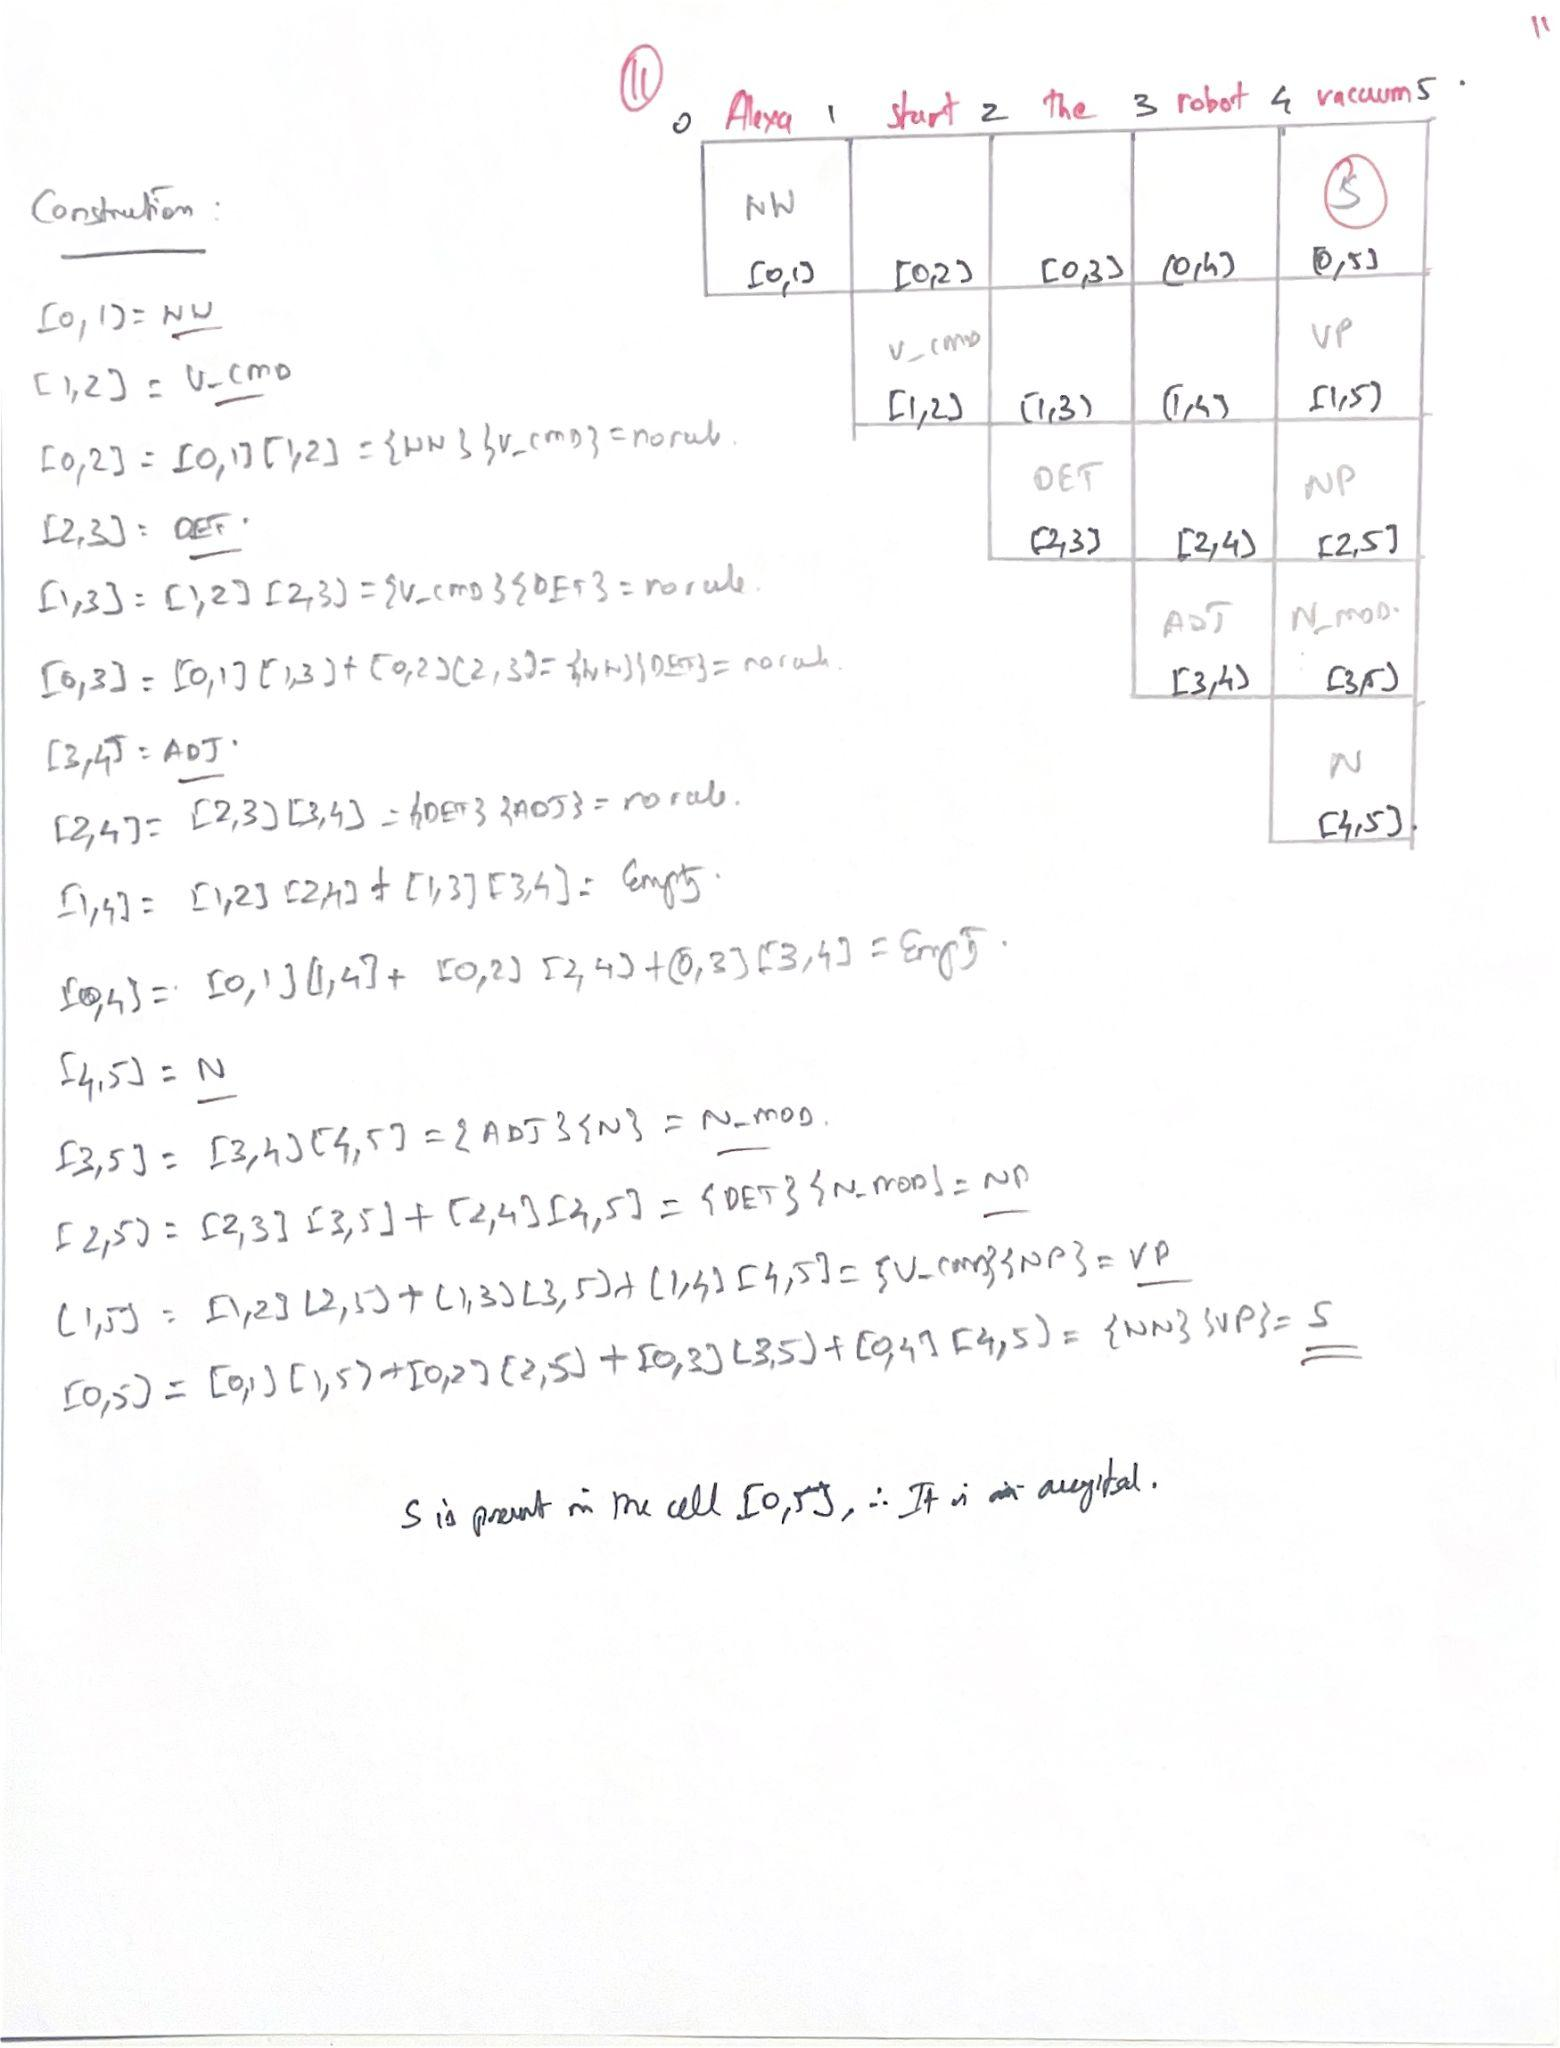 11
(11)
0 Alexa 1 start 2 the 3 robot 4 vacuum 5 .
NN S
[0,1] [0,2] [0,3] [0,4] [0,5]
V_CMD VP
[1,2] [1,3] [1,4] [1,5]
DET NP
[2,3] [2,4] [2,5]
ADJ N_MOD.
[3,4] [3,5]
N
[4,5].
Construction :
[0,1] = NN
[1,2] = V_CMD
[0,2] = [0,1] [1,2] = {NN} {V_CMD} = no rule.
[2,3] = DET.
[1,3] = [1,2] [2,3] = {V_CMD} {DET} = no rule.
[0,3] = [0,1] [1,3] + [0,2] [2,3] = {NN} {DET} = no rule.
[3,4] = ADJ.
[2,4] = [2,3] [3,4] = {DET} {ADJ} = no rule.
[1,4] = [1,2] [2,4] + [1,3] [3,4] = Empty.
[0,4] = [0,1] [1,4] + [0,2] [2,4] + [0,3] [3,4] = Empty.
[4,5] = N
[3,5] = [3,4] [4,5] = {ADJ} {N} = N_MOD.
[2,5] = [2,3] [3,5] + [2,4] [4,5] = {DET} {N_MOD} = NP
[1,5] = [1,2] [2,5] + [1,3] [3,5] + [1,4] [4,5] = {V_CMD} {NP} = VP
[0,5] = [0,1] [1,5] + [0,2] [2,5] + [0,3] [3,5] + [0,4] [4,5] = {NN} {VP} = S
S is present in the cell [0,5], ∴ It is